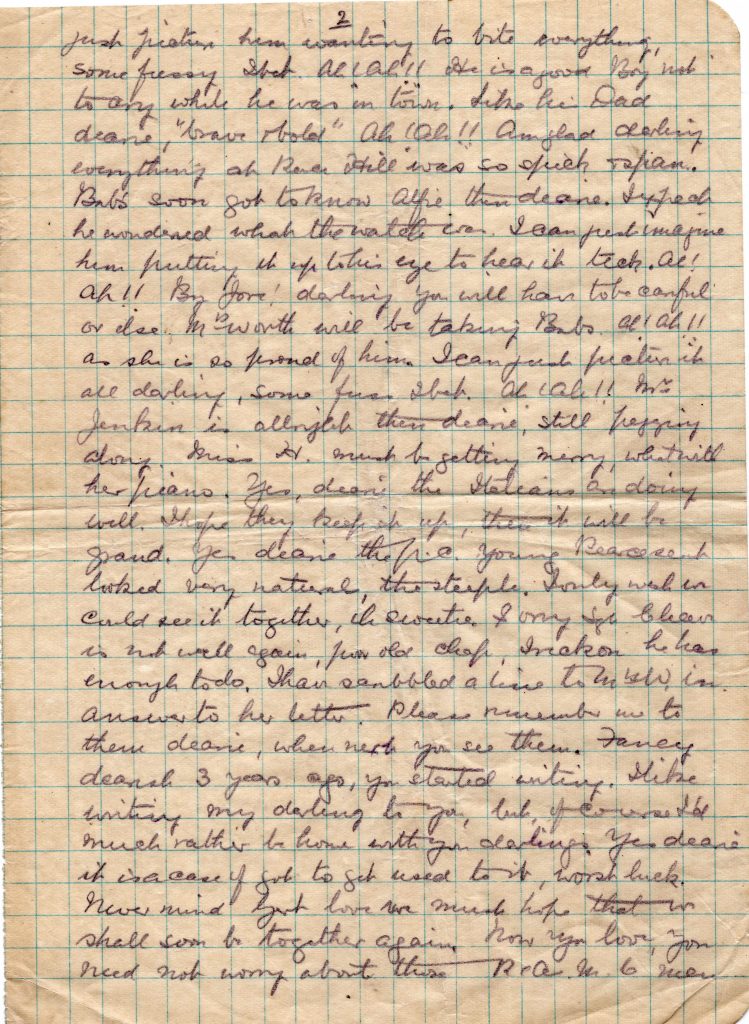 2
just picture him wanting to bite everything,
some fussy I bet. Ah! Ah!! He is a good Boy not
to cry while he was in town. Like his Dad
dearie, "brave & bold" Ah! Ah!! Am glad darling
everything at Hill was so spick & span.
Babs soon got to know Alfie then dearie. I expect
he wondered what the watch was. I can just imagine
him putting it up to his eye to hear it tick. Ah!
Ah!! By Jove! darling you will have to be careful
or else Mrs Worth will be taking Babs. Ah! Ah!!
as she is so proud of him. I can just picture it
all darling, some fuss I bet. Ah! Ah!! Mrs
Jenkin is allright then dearie, still pegging
along. Miss H. must be getting merry, what with
her piano. Yes, dearie the Italians are doing
well. I hope they keep it up, then it will be
grand. Yes dearie the p.c. young Pearce sent
looked very natural, the steeple. I only wish we
could see it together, eh sweetie. Sorry Sgt
is not well again, poor old chap, I reckon he has
enough to do. I have scribbled a line to Mrs W. in
answer to her letter. Please remember me to
them dearie, when next you see them. Fancy
dearest 3 years ago, you started writing. I like
writing my darling to you, but, of course I'd
much rather be home with you darlings. Yes dearie
it is a case of got to get used to it, worst luck.
Never mind love we must hope that we
shall soon be together again. Now you love, you
need not worry about those R.A.M.C men